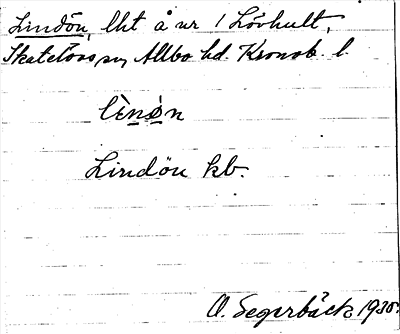 Lindön, lht å nr 1 Lövhult,
Skatelövs sn, Allbo hd. Kronob. l.
lìnǿn
Lindön kb.
O. Segerbäck 1935.